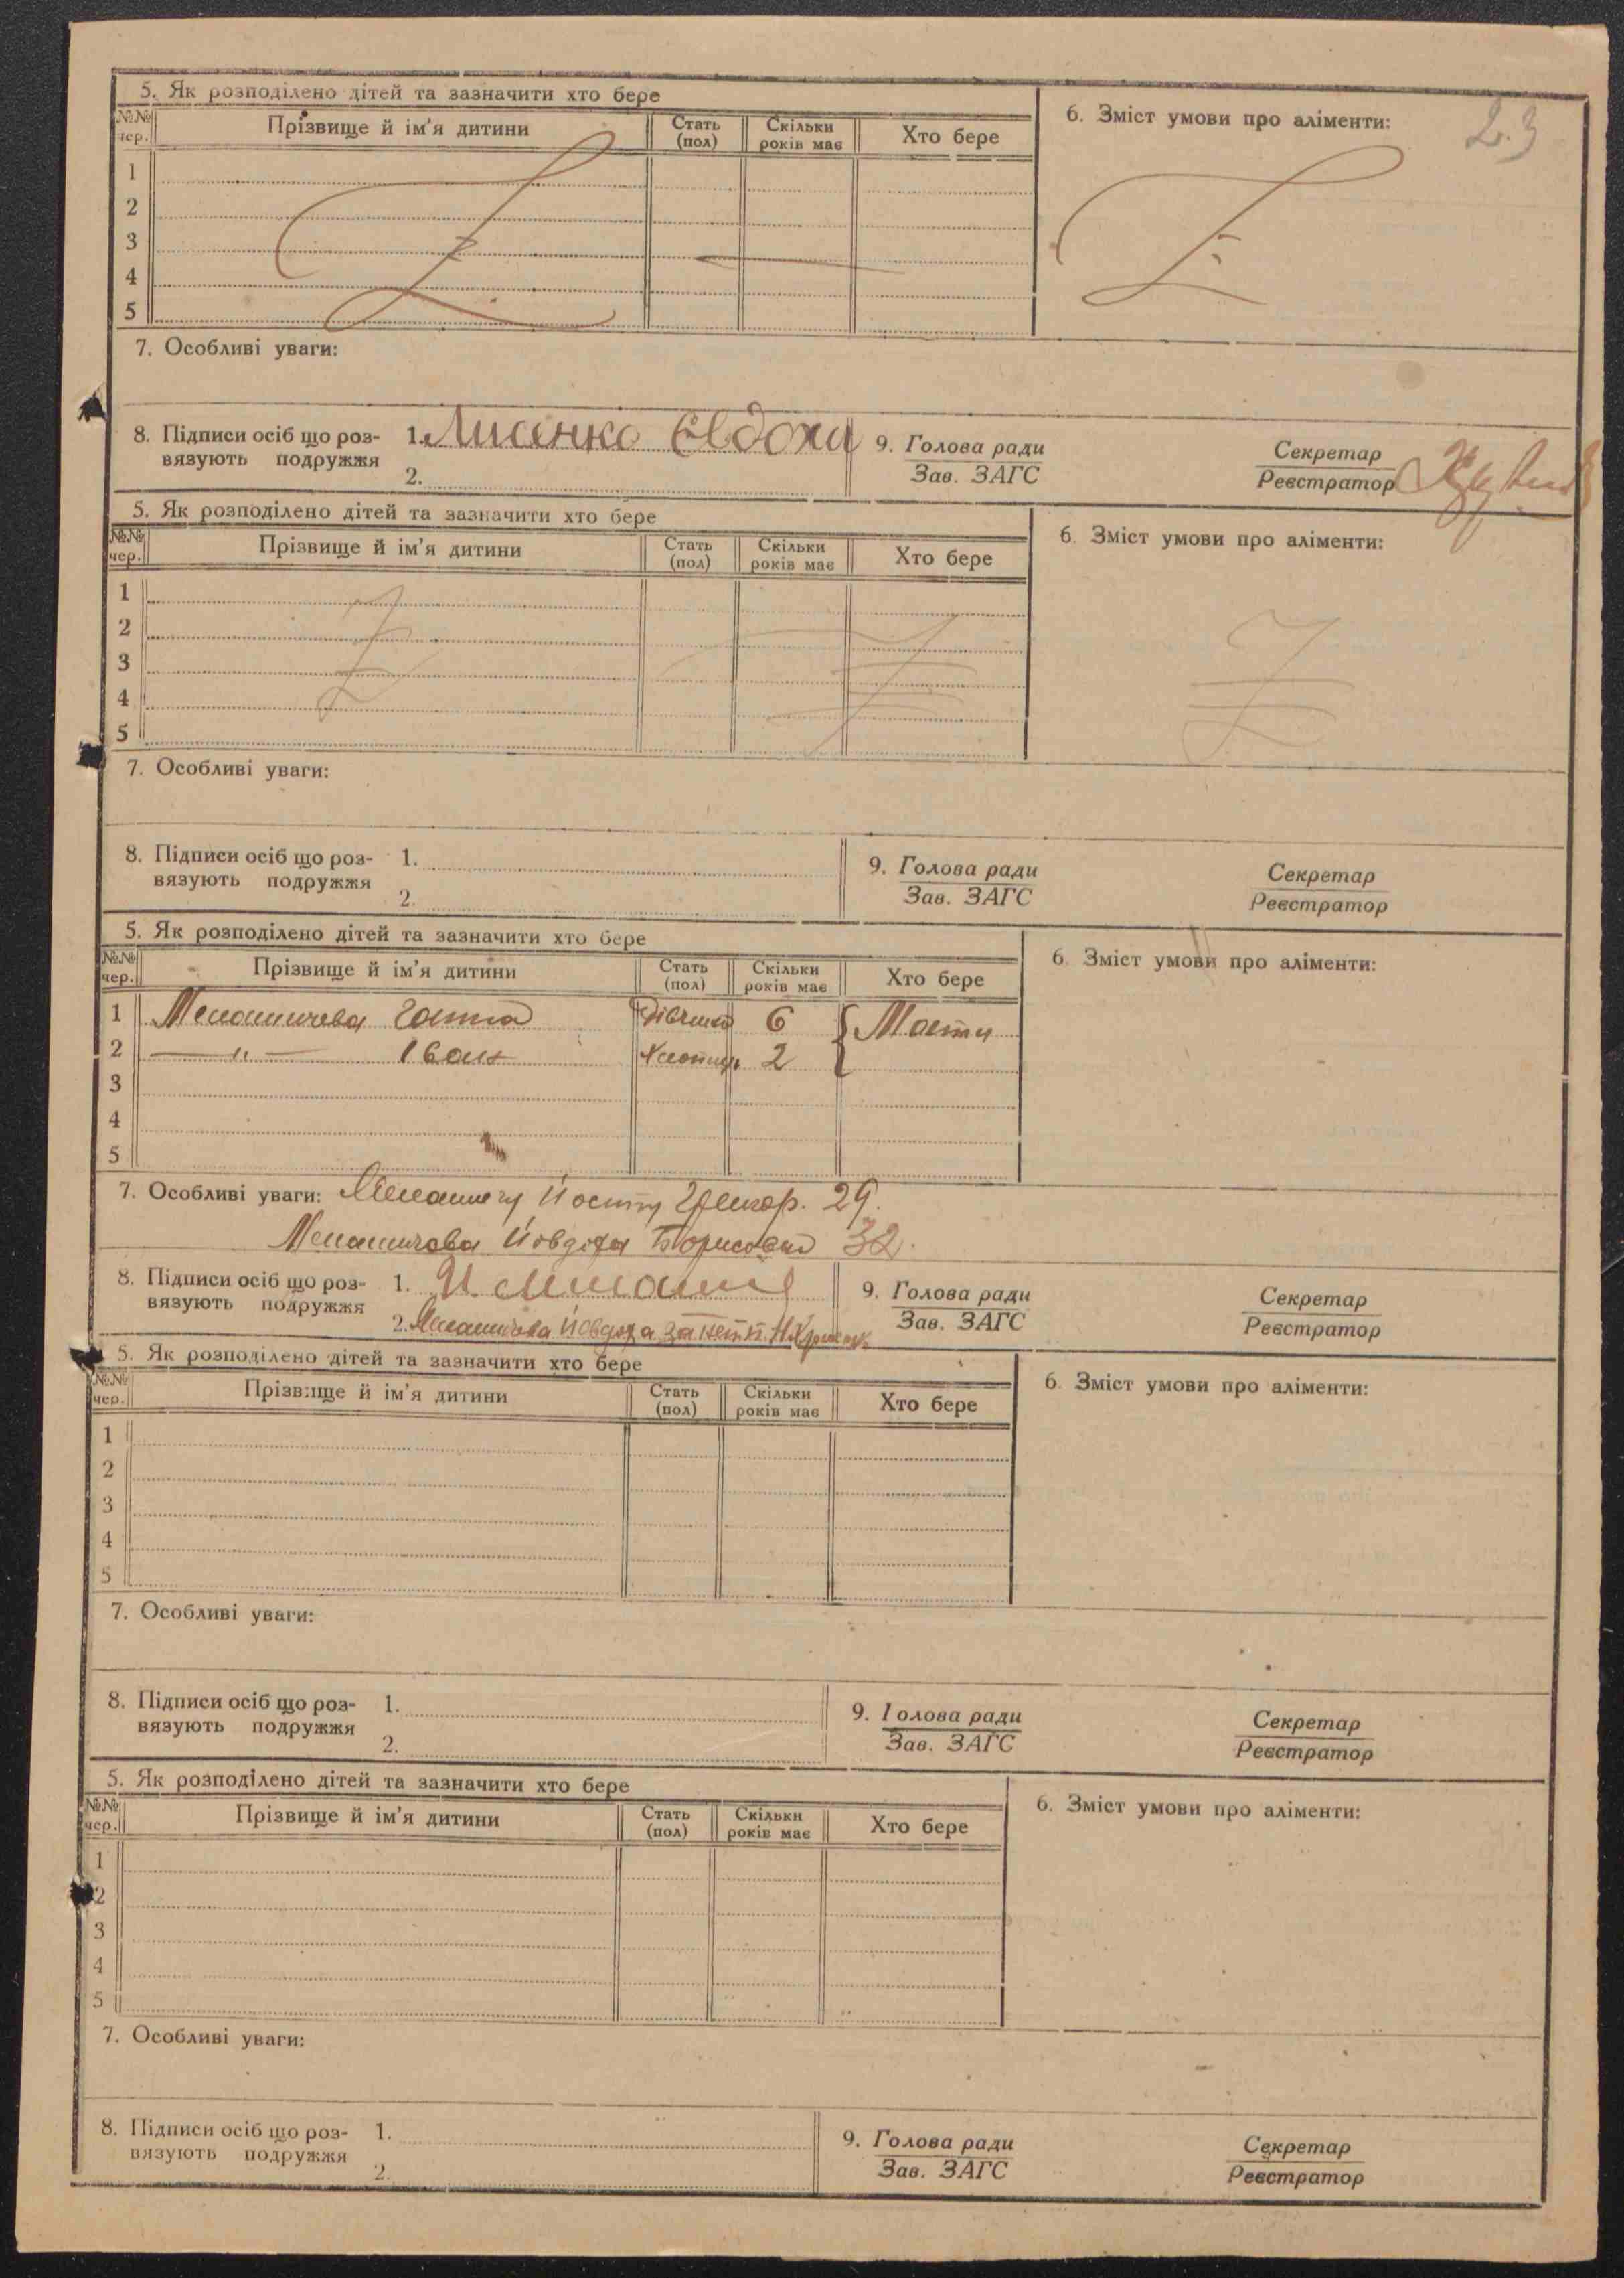 5. Як розподілено дітей та зазначити хто бере
6. Зміст умови про аліменти:
2.3
№№ чер. Прізвище й ім'я дитини Стать (пол) Скільки років має Хто бере
1
2
3
4
5
7. Особливі уваги:
8. Підписи осіб що роз- 1. Лисенко Євдоха 9. Голова ради Секретар
вязують подружжя 2. Зав. ЗАГС Реєстратор
5. Як розподілено дітей та зазначити хто бере
6. Зміст умови про аліменти:
№№ чер. Прізвище й ім'я дитини Стать (пол) Скільки років має Хто бере
1
2
3
4
5
7. Особливі уваги:
8. Підписи осіб що роз- 1. 9. Голова ради Секретар
вязують подружжя 2. Зав. ЗАГС Реєстратор
5. Як розподілено дітей та зазначити хто бере
6. Зміст умови про аліменти:
№№ чер. Прізвище й ім'я дитини Стать (пол) Скільки років має Хто бере
1 Ганна 6 Мати
2 —"— Іван 2
3
4
5
7. Особливі уваги: 29.
Йовдоха Борисовна 32.
8. Підписи осіб що роз- 1. 9. Голова ради Секретар
вязують подружжя 2. Йовдоха Зав. ЗАГС Реєстратор
5. Як розподілено дітей та зазначити хто бере
6. Зміст умови про аліменти:
№№ чер. Прізвище й ім'я дитини Стать (пол) Скільки років має Хто бере
1
2
3
4
5
7. Особливі уваги:
8. Підписи осіб що роз- 1. 9. Голова ради Секретар
вязують подружжя 2. Зав. ЗАГС Реєстратор
5. Як розподілено дітей та зазначити хто бере
6. Зміст умови про аліменти:
№№ чер. Прізвище й ім'я дитини Стать (пол) Скільки років має Хто бере
1
2
3
4
5
7. Особливі уваги:
8. Підписи осіб що роз- 1. 9. Голова ради Секретар
вязують подружжя 2. Зав. ЗАГС Реєстратор